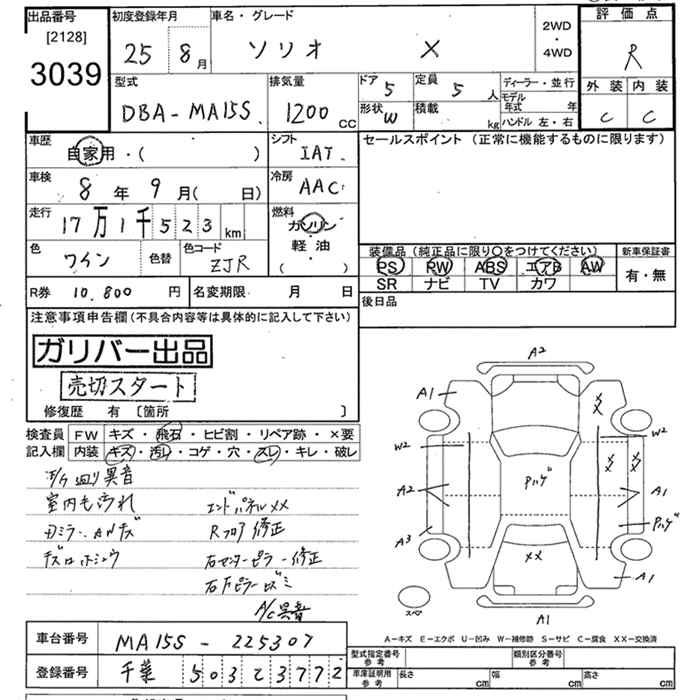 出品番号
[2128]
3039
初度登録年月
25 8月
車名・グレード
ソリオ X
2WD
・
4WD
評価点
R
外装 内装
C C
型式
DBA-MA15S
排気量
1200 cc
ドア 5
形状 W
定員 5 人
積載 kg
ディーラー・並行
モデル年式 年
ハンドル 左・右
車歴
自家用・( )
シフト
IAT
セールスポイント (正常に機能するものに限ります)
車検
8年 9月( 日)
冷房
AAC
走行
17万1千523km
燃料
ガソリン
軽油
( )
色
ワイン
色替
色コード
ZJR
装備品 (純正品に限り○をつけてください)
PS PW ABS エアB AW
SR ナビ TV カワ
新車保証書
有・無
R券 10,800 円
名変期限 月 日
後日品
注意事項申告欄 (不具合内容等は具体的に記入して下さい)
ガリバー出品
売切スタート
修復歴 有 〔箇所 〕
検査員 FW キズ・飛石・ヒビ割・リペア跡・×要
記入欄 内装 キズ・汚れ・コゲ・穴・スレ・キレ・破レ
廻り異音
室内もヨゴレ
エンドパネルXX
Rフロア修正
右センターピラー修正
A/C異音
A2
A1
XX
W2
W2
A2
Pハゲ
XX XX
A1
A3
Pハゲ
XX
A1
スペア
A1
A-キズ E-エクボ U-凹み W-補修跡 S-サビ C-腐食 XX-交換済
車台番号 MA15S-225307
登録番号 千葉 503 て 3772
型式指定番号 参考
類別区分番号 参考
車庫証明用 参考
長さ cm
幅 cm
高さ cm